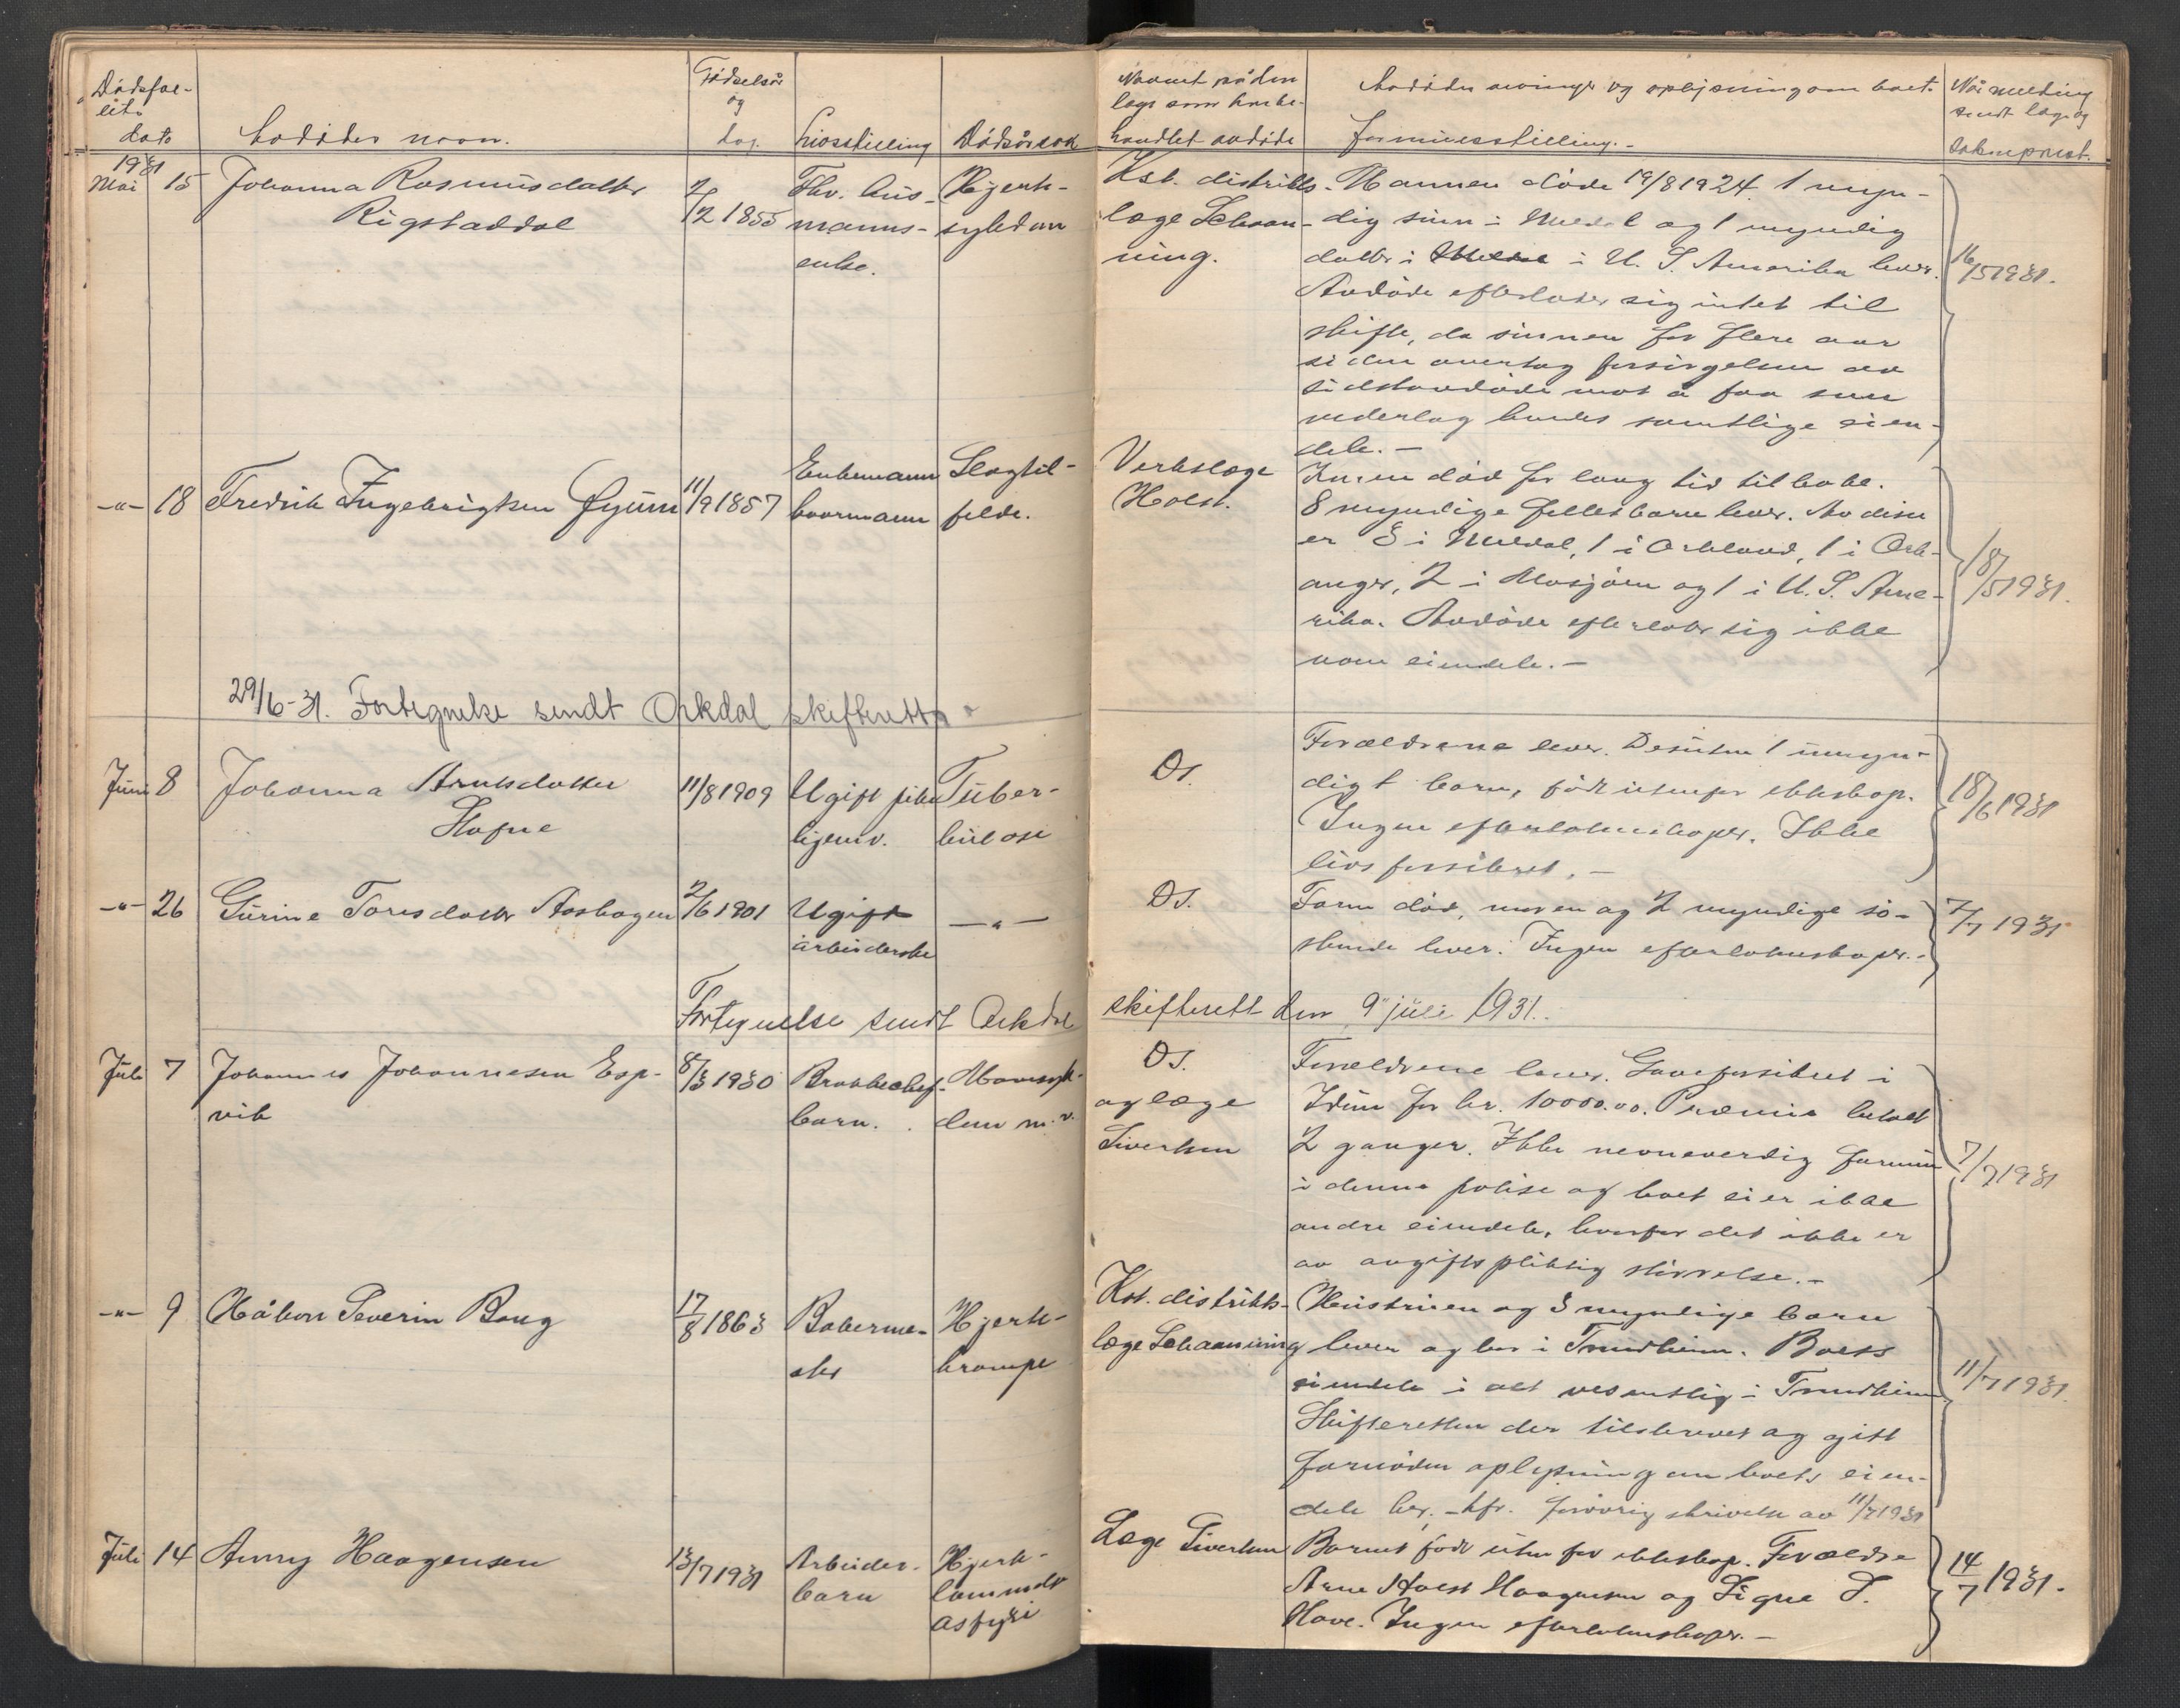 Dødsfal-
lets
dato
Avdødes navn.
Fødselsår
og
dag.
Livsstilling
Dødsårsak
Navnet på den
læge som har be-
handlet avdøde
Avdødes arvinger og oplysning om boets
formuesstilling.-
Når melding
sendt læge og
sokneprest.
1931
Mai 15 Johanna Rasmusdatter
Rigstaddal
2/2 1855
Fhv. hus-
manns-
enke.
Hjerte-
sykdom
Kst. distrikts-
læge Schaan-
ning.
Mannen døde 19/8 1924. 1 myn-
dig sønn i Meldal og 1 myndig
datter i U. S. Amerika lever.
Avdøde efterlater sig intet til
skifte, da sønnen for flere aar
siden overtog forsørgelsen av
sidstavdøde mot å faa som
vederlag hendes samtlige eien-
dele.-
16/5 1931.
-"- 18 Fredrik Ingebrigtsen Øyum
11/9 1857
Enkemann
kaarmann
Slagtil-
felde.
Verkslæge
Holst.
Konen død for lang tid tilbake.
8 myndige fellesbarn lever. Av disse
er 3 i Meldal, 1 i Orkland, 1 i Ork-
anger, 2 i Mosjøen og 1 i U. S. Ame-
rika. Avdøde efterlater sig ikke
noen eiendele.-
18/5 1931.
29/6-31. Fortegnelse sendt Orkdal skifterett
Juni 8 Johanna Arntsdatter
Hofne
11/8 1909
Ugift pike
hjemv.
Tuber-
kulose
Ds.
Forældrene lever. Desuten 1 umyn-
digt barn, født utenfor ekteskap.
Ingen efterlatenskaper. Ikke
livsforsikret.-
18/6 1931
-"- 26 Gurine Toresdatter Aashagen
2/6 1901
Ugift
arbeiderske
-"-
Ds.
Faren død, moren og 2 myndige sø-
skende lever. Ingen efterlatenskaper.-
7/7 1931
Fortegnelse sendt Orkdal skifterett den 9. juli 1931.
Juli 7 Johannes Johannesen Esp-
vik
8/3 1930
barn.
dom m.v.
Ds.
og læge
Sivertsen
Forældrene lever. Gaveforsikret i
Idun for kr. 10000.00. Præmie betalt
2 ganger. Ikke nevneverdig formue
i denne polise og boet eier ikke
andre eiendele, hvorfor det ikke er
av avgiftspliktig størrelse.-
7/7 1931
-"- 9 Håkon Severin Bang
17/8 1863
Bakerme-
ster
Hjerte-
krampe
Kst. distrikts-
læge Schaanning
Hustruen og 3 myndige barn
lever og bor i Trondheim. Boets
eiendele i alt vesentlig i Trondheim
Skifteretten der tilskrevet og gitt
fornøden oplysning om boets eien-
dele her. -kfr. forøvrig skrivelse av 11/7 1931
11/7 1931.
Juli 14 Anny Haagensen
13/7 1931
Arbeider-
barn
Hjerte-
lammelse
asfyxi
Læge Sivertsen
Barnet født uten for ekteskap. Forældre
Arne Holst Haagensen og Signe S.
Hove. Ingen efterlatenskaper.-
14/7 1931.